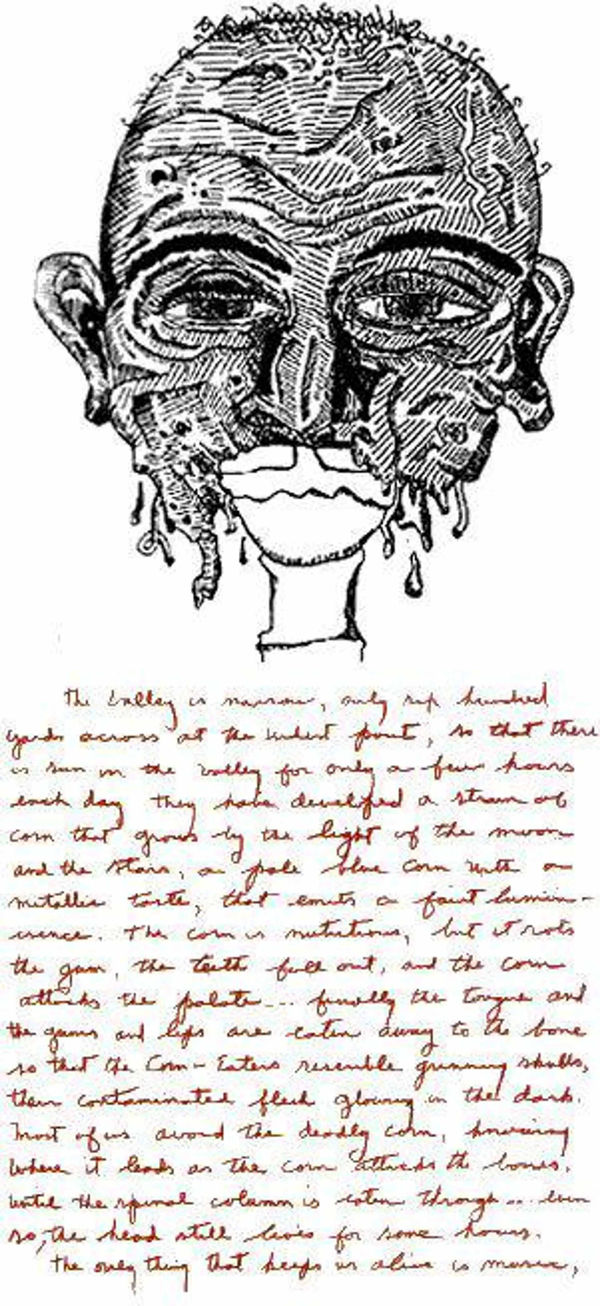 The Valley is narrow, only six hundred
yards across at the widest point, so that there
is sun in the valley for only a few hours
each day. They have developed a strain of
corn that grows by the light of the moon
and the stars, a pale blue corn with a
metallic taste, that emits a faint lumin-
iscence. The corn is nutritious, but it rots
the gum, the teeth fall out, and the corn
attacks the palate... finally the tongue and
the gums and lips are eaten away to the bone
so that the Corn-Eaters resemble grinning skulls,
their contaminated flesh glowing in the dark.
Most of us avoid the deadly corn, knowing
where it leads as the corn attacks the bones.
until the spinal column is eaten through... even
so, the head still lives for some hours.
The only thing that keeps us alive is music,